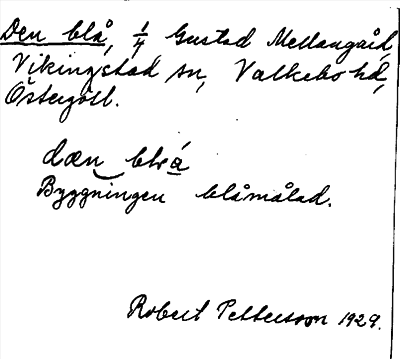 Den blå, 1/4 Gustad Mellangård,
Vikingstad sn, Valkebo hd,
Östergötl.
dœn blɑ̀
Byggningen blåmålad.
Robert Pettersson 1929.